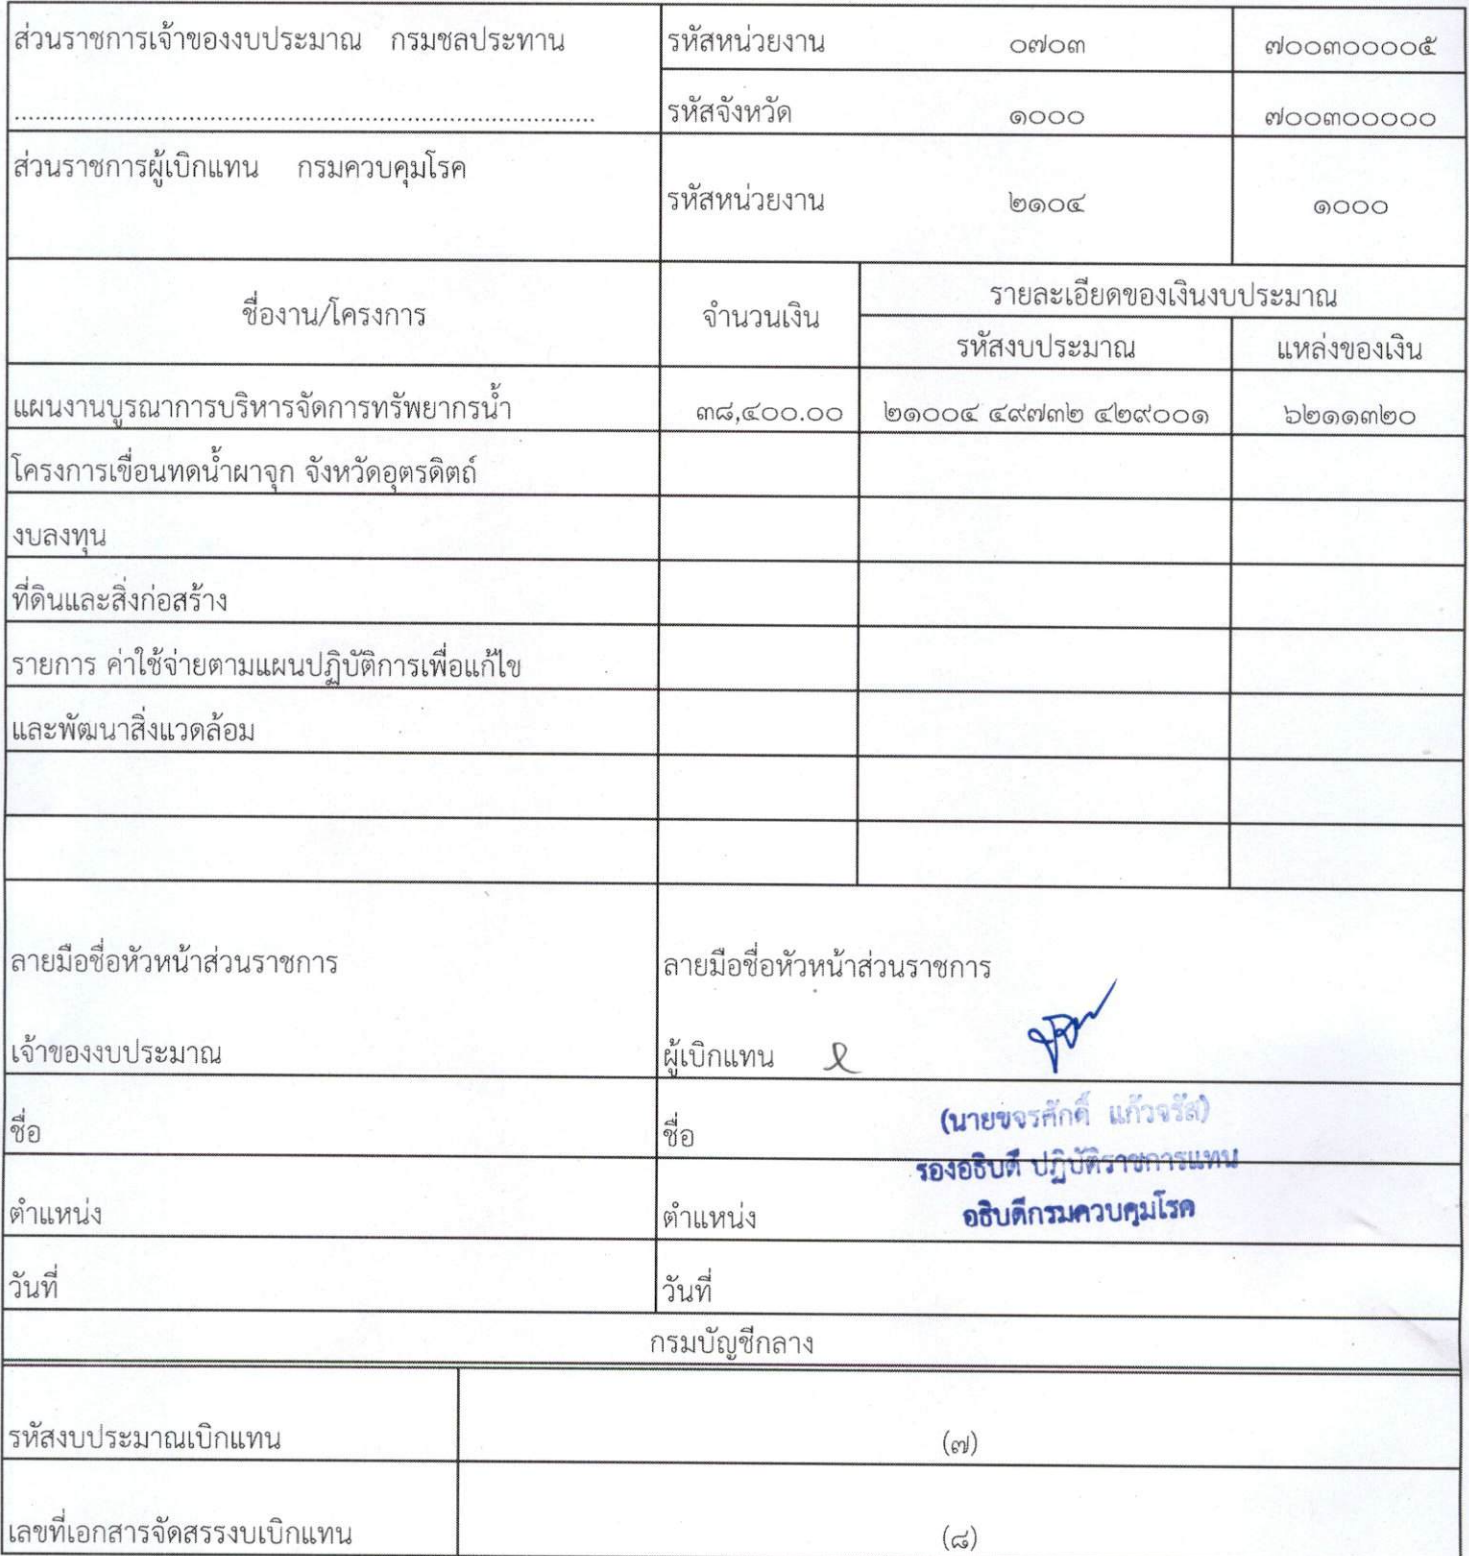 ส่วนราชการเจ้าของงบประมาณ กรมชลประทาน
รหัสหน่วยงาน ๐๗๐๓ ๗๐๐๓๐๐๐๐๕
................................................................................
รหัสจังหวัด ๑๐๐๐ ๗๐๐๓๐๐๐๐๐
ส่วนราชการผู้เบิกแทน กรมควบคุมโรค
รหัสหน่วยงาน ๒๑๐๔ ๑๐๐๐
ชื่องาน/โครงการ จำนวนเงิน รายละเอียดของเงินงบประมาณ
รหัสงบประมาณ แหล่งของเงิน
แผนงานบูรณาการบริหารจัดการทรัพยากรน้ำ ๓๘,๔๐๐.๐๐ ๒๑๐๐๔ ๔๙๗๓๒ ๔๒๙๐๐๑ ๖๒๑๑๓๒๐
โครงการเขื่อนทดน้ำผาจุก จังหวัดอุตรดิตถ์
งบลงทุน
ที่ดินและสิ่งก่อสร้าง
รายการ ค่าใช้จ่ายตามแผนปฏิบัติการเพื่อแก้ไข
และพัฒนาสิ่งแวดล้อม
ลายมือชื่อหัวหน้าส่วนราชการ ลายมือชื่อหัวหน้าส่วนราชการ
เจ้าของงบประมาณ ผู้เบิกแทน
ชื่อ ชื่อ (นายขจรศักดิ์ แก้วจรัส)
รองอธิบดี ปฏิบัติราชการแทน
ตำแหน่ง ตำแหน่ง อธิบดีกรมควบคุมโรค
วันที่ วันที่
กรมบัญชีกลาง
รหัสงบประมาณเบิกแทน (๗)
เลขที่เอกสารจัดสรรงบเบิกแทน (๘)